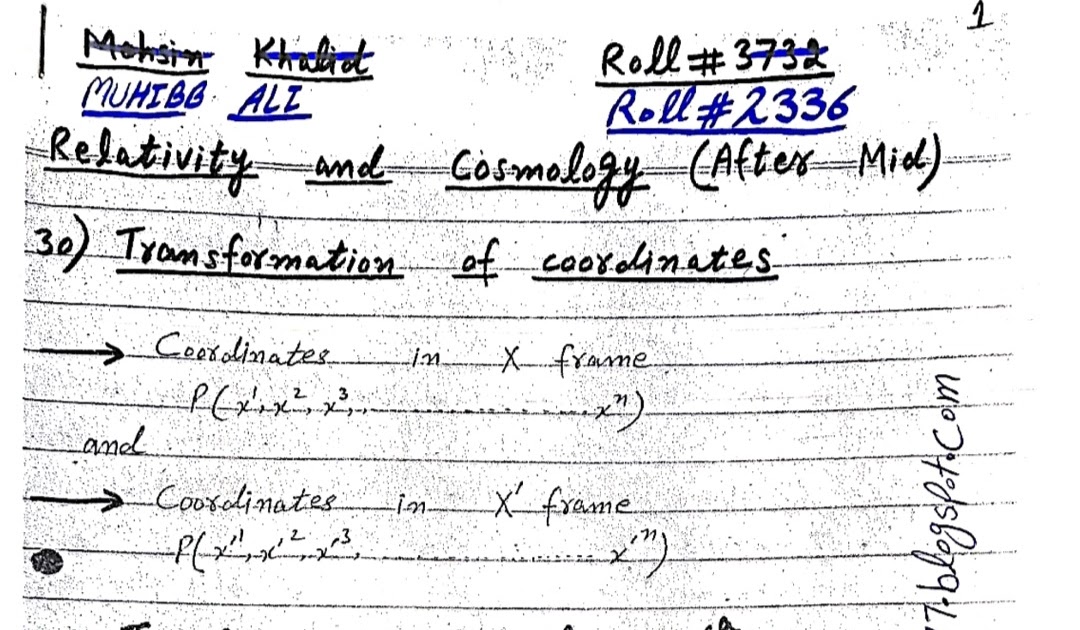 1
Mohsin Khalid Roll # 3732
MUHIBB ALI Roll # 2336
Relativity and Cosmology (After Mid)
30) Transformation of coordinates
→ Coordinates in X frame
P(x¹, x², x³, ............ xⁿ)
and
→ Coordinates in X' frame
P(x'¹, x'², x'³, ............ x'ⁿ)
7.blogspot.com